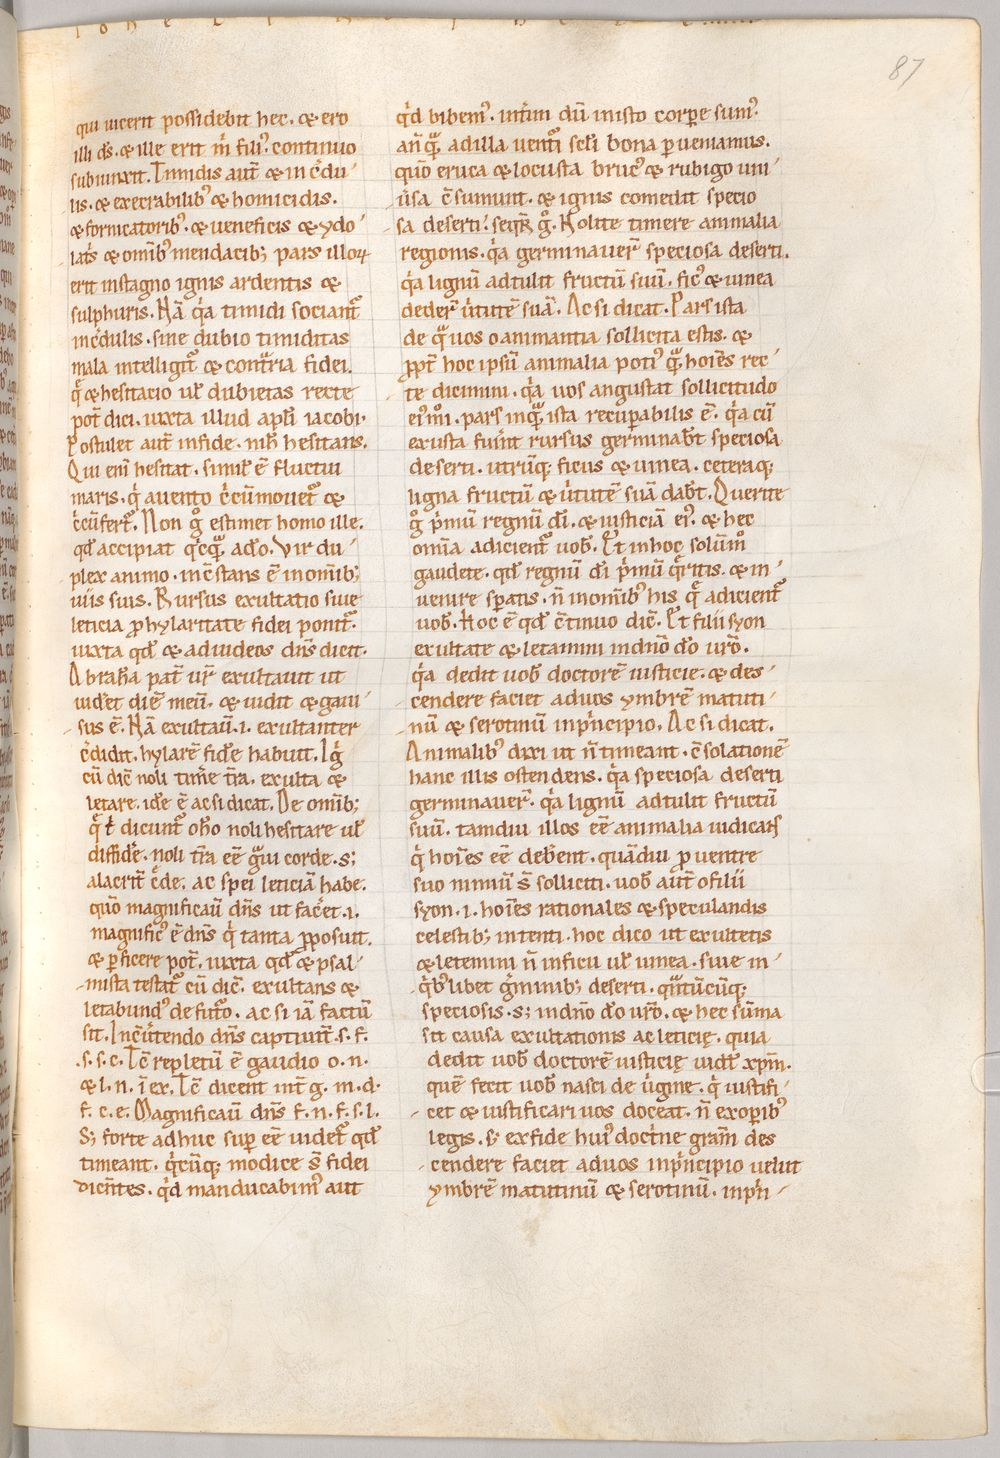 87
qui uicerit possidebit hec. & ero
illi ds̄. & ille erit m̄ filiꝰ. continuo
subiunxit. Timidis aut̄ & incᷓdu-
lis. & execrabilibꝰ & homicidis.
& fornicatoribꝰ. & ueneficis & ydo-
latᷓs & omībꝰ mendacibꝫ pars illoꝝ
erit instagno ignis ardentis &
sulphuris. Nā qᷓa timidi sociant᷑
incᷓdulis. sine dubio timiditas
mala intelligit᷑ & contᷓria fidei.
q̄ & hesitacio ul̄ dubietas recte
pot̄ dici. iuxta illud apl̄i iacobi.
Postulet aut̄ infide. nih̄ hesitans.
Qui eni hesitat. simil̄ ē fluctui
maris. qͥ auento cͥcūmouet᷑ &
cͥcūfert᷑. Non gͦ estimet homo ille.
qd̄ accipiat qͥcqᷓ ado. Vir du-
plex animo. incōstans ē inomībꝫ
uiis suis. Rursus exultatio siue
leticia ꝓhylaritate fidei ponit᷑.
iuxta qd̄ & adiudeos dn̄s dicit.
Abrah̄a pat̄ ur̄ exultauit ut
uidet diē meū. & uidit & gaui-
sus ē. Nā exultaū. i. exultanter
cᷓdidit. hylarē fidē habuit. Igͥ
cū dic̄ noli timēe t̄ra. exulta &
letare. idē ē acsi dicat. De omībꝫ
q̄ t̄ dicunt᷑ oh̄o noli hesitare ul̄
diffidēe. noli t̄ra eē gᷓui corde. sꝫ
alacrit̄ cᷓde. ac spei leticiā habe.
quō magnificaū dn̄s ut facēt. i.
magnificꝰ ē dn̄s qͥ tanta ꝓposuit.
& ꝑficere pot̄. iuxta qd̄ & psal-
mista testat᷑ cū dic̄. exultans &
letabundꝰ de futᷓo. ac si iā factū
sit. Incōutendo dn̄s captiuit̄. s. f.
.s. s. c. Tc̄ repletū ē gaudio o. n.
& l. n. i ex. Tc̄ dicent int̄ g. m. d.
f. c. e. Magnificaū dn̄s f. n. f. s. l.
Sꝫ forte adhuc suꝑ eē uidet᷑ qd̄
timeant. qͥcūqꝫ modice s̄ fidei
dicn̄tes. qͥd manducabimꝰ aut
qͥd bibemꝰ. intīm dū inisto corꝑe sumꝰ.
an̄ qᷓ adilla uentᷓi scl̄i bona ꝑueniamus.
quō eruca & locusta brucꝰ & rubigo uni-
ūsa cōsumunt. & ignis comedit specio
sa deserti? seqr̄ gͦ. Nolite timere animalia
regionis. qᷓa germinauer̄ speciosa deserti.
qᷓa lignū adtulit fructū suū. ficꝰ & uinea
deder̄ uᷓtutē suā. Acsi dicat. Pars ista
de qᷓ uos o animantia sollicita estis. &
ꝓpt̄ hoc ipsū animalia potiꝰ qᷓ hoīes rec-
te dicimini. qᷓa uos angustat sollicitudo
eiꝰm̄i. pars inqᷓ ista recuꝑabilis ē. qᷓa cū
exusta fuīnt rursus germinab̄t speciosa
deserti. utrūqꝫ ficus & uinea. ceteraqꝫ
ligna fructū & uᷓtutē suā dab̄t. Querite
gͦ pͥmū regnū dī. & iusticiā eiꝰ. & hec
omīa adicient᷑ uob̄. Et inhoc solūmͦ
gaudete. qd̄ regnū dī pͥmū qͥritis. & in-
uenire sꝑatis. n̄ inomībꝰ his q̄ adicient᷑
uob̄. Hoc ē qd̄ cōtinuo dic̄. Et filii syon
exultate & letamini indn̄o dō ur̄o.
qᷓa dedit uob̄ doctorē iusticie. & des-
cendere faciet aduos ymbrē matuti-
nū & serotinū inpͥncipio. Ac si dicat.
Animalibꝰ dixi ut n̄ timeant. cōsolationē
hanc illis ostendens. qᷓa speciosa deserti
germinauer̄. qᷓa lignū adtulit fructū
suū. tamdiu illos eē animalia iudicans
qͥ hoīes eē deb̄ent. quādiu ꝓ uentre
suo nimiū s̄ solliciti. uob̄ aut̄ o filii
syon. i. hoīes rationales & speculandis
celestibꝫ intenti. hoc dico ut exultetis
& letemini n̄ inficu ul̄ uinea. siue in-
qͥbꝰlibet gͥminibꝫ deserti. qᷓtūcūqꝫ
speciosis. sꝫ indn̄o dō ur̄o. & hec sūma
sit causa exultationis ac leticię. quia
dedit uob̄ doctorē iusticię uidel̄ xpm̄.
quē fecit uob̄ nasci de uͥgine. qͥ iustifi-
cet & iustificari uos doceat. n̄ exoꝑibꝰ
legis. sꝫ exfide huiꝰ doctͥne gram̄ des
cendere faciet aduos inpͥncipio uelut
ymbrē matutinū & serotinū. inpͥn-